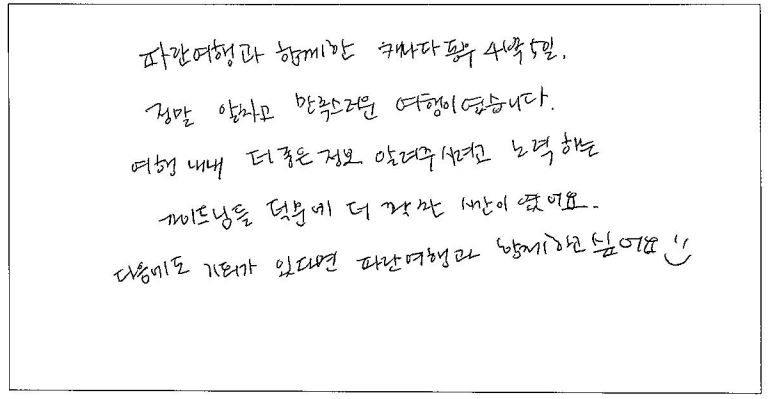 파란여행과 함께한 캐나다 동부 4박 5일.
정말 알차고 만족스러운 여행이였습니다.
여행 내내 더 좋은 정보 알려주시려고 노력하는
가이드님들 덕분에 더 꽉 찬 시간이였어요.
다음에도 기회가 있다면 파란여행과 함께하고 싶어요